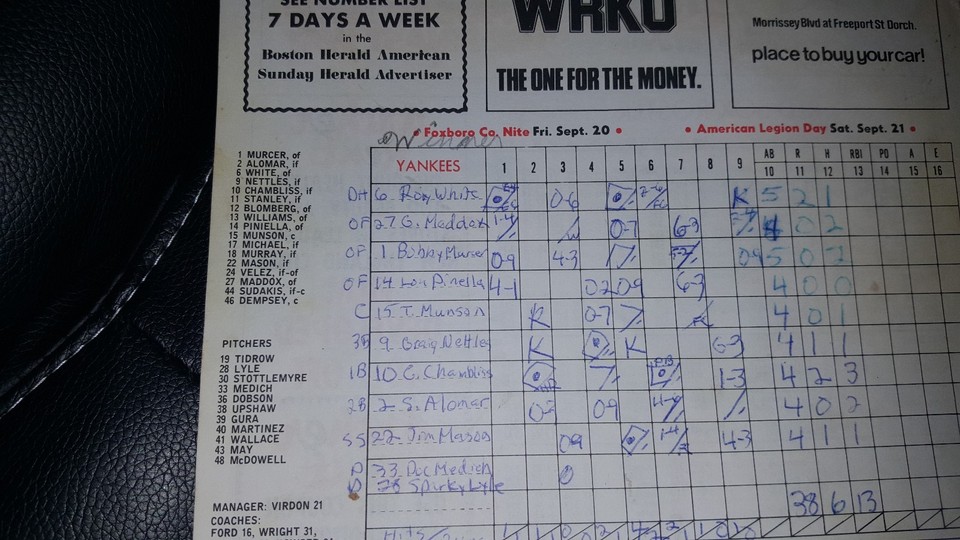 SEE NUMBER LIST
7 DAYS A WEEK
in the
Boston Herald American
Sunday Herald Advertiser
WRKO
THE ONE FOR THE MONEY.
Morrissey Blvd at Freeport St Dorch.
place to buy your car!
• Foxboro Co. Nite Fri. Sept. 20 •
• American Legion Day Sat. Sept. 21 •
Winner
1 MURCER, of
2 ALOMAR, if
6 WHITE, of
9 NETTLES, if
10 CHAMBLISS, if
11 STANLEY, if
12 BLOMBERG, of
13 WILLIAMS, of
14 PINIELLA, of
15 MUNSON, c
17 MICHAEL, if
18 MURRAY, if
22 MASON, if
24 VELEZ, if-of
27 MADDOX, of
44 SUDAKIS, if-c
46 DEMPSEY, c
PITCHERS
19 TIDROW
28 LYLE
30 STOTTLEMYRE
33 MEDICH
36 DOBSON
38 UPSHAW
39 GURA
40 MARTINEZ
41 WALLACE
43 MAY
48 McDOWELL
MANAGER: VIRDON 21
COACHES:
FORD 16, WRIGHT 31,
YANKEES 1 2 3 4 5 6 7 8 9 AB R H RBI PO A E
10 11 12 13 14 15 16
DH 6. Roy White 0-6 K 5 2 1
OF 27. G. Maddox 1-4 0-7 6-3 4 0 2
OF 1. Bobby Murcer 0-9 4-3 09 5 0 2
OF 14. Lou Pinella 4-1 02 09 6-3 4 0 0
C 15. T. Munson K 0-7 4 0 1
3B 9. Graig Nettles K K 6-3 4 1 1
1B 10. C. Chambliss 1-3 4 2 3
2B 2. S. Alomar 09 4 0 2
SS 22. Jim Mason 09 1-4 4-3 4 1 1
P 33. Doc Medich 0
P 28 Sparky Lyle
38 6 13
Hits